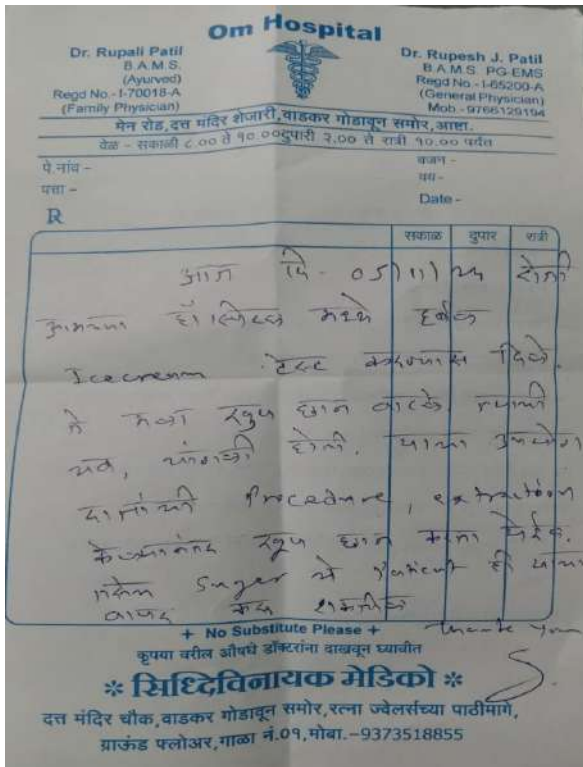 Om Hospital
Dr. Rupali Patil
B.A.M.S.
(Ayurved)
Regd No.-I-70018-A
(Family Physician)
Dr. Rupesh J. Patil
B.A.M.S. PG-EMS
Regd No.-I-65200-A
(General Physician)
Mob.-9766129194
मेन रोड,दत्त मंदिर शेजारी,वाडकर गोडावून समोर,आष्टा.
वेळ - सकाळी ८.०० ते १०.००दुपारी २.०० ते रात्री १०.०० पर्यंत
पे.नांव -
पत्ता -
वजन -
वय -
Date -
R
सकाळ दुपार रात्री
आज दि - 05/11/24 रोजी
आमच्या हॉस्पिटल मध्ये हर्बल
Icecream टेस्ट करण्यास दिले.
ते मला खुप छान वाटले. त्याची
चव, चांगली होती. याचा उपयोग
दातांची Procedure, extraction
केल्यानंतर खुप छान करता येईल.
तसेच Suger चे Patient ही याचा
वापर करू शकतील
Thank You
+ No Substitute Please +
कृपया वरील औषधे डॉक्टरांना दाखवून घ्यावीत
* सिध्दिविनायक मेडिको *
दत्त मंदिर चौक,वाडकर गोडावून समोर,रत्ना ज्वेलर्सच्या पाठीमागे,
ग्राऊंड फ्लोअर,गाळा नं.०१,मोबा.-9373518855